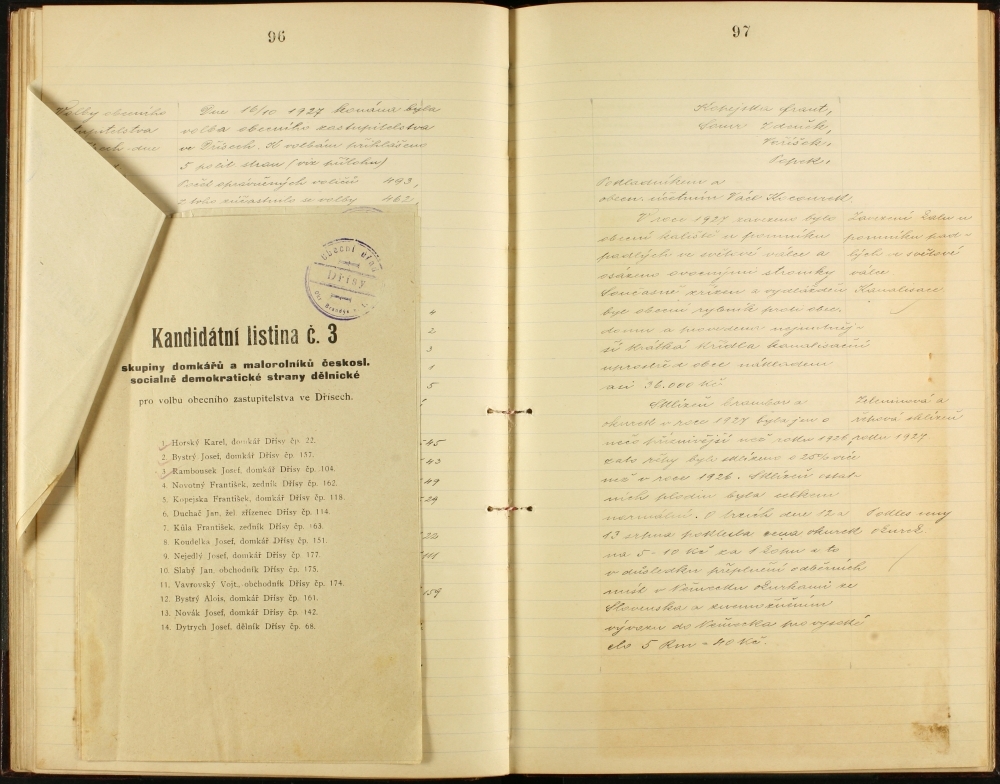 96
Volby obecního
Dne 16/10 1927 konána byla
volba obecního zastupitelstva
ve Dřísech. K volbám přihlášeno
5 polit. stran (viz přílohu)
Počet oprávněných voličů 493,
z toho súčastnilo se volby 462
Obecní úřad
Dřísy
Kandidátní listina č. 3
skupiny domkářů a malorolníků českosl.
socialně demokratické strany dělnické
pro volbu obecního zastupitelstva ve Dřísech.
1. Horský Karel, domkář Dřísy čp. 22.
2. Bystrý Josef, domkář Dřísy čp. 137.
3. Rambousek Josef, domkář Dřísy čp. 104.
4. Novotný František, zedník Dřísy čp. 162.
5. Kopejska František, domkář Dřísy čp. 118.
6. Duchač Jan, žel. zřízenec Dřísy čp. 114.
7. Kůla František, zedník Dřísy čp. 163.
8. Koudelka Josef, domkář Dřísy čp. 151.
9. Nejedlý Josef, domkář Dřísy čp. 177.
10. Slabý Jan, obchodník Dřísy čp. 175.
11. Vavrovský Vojt., obchodník Dřísy čp. 174.
12. Bystrý Alois, domkář Dřísy čp. 161.
13. Novák Josef, domkář Dřísy čp. 142.
14. Dytrych Josef, dělník Dřísy čp. 68.
4
2
3
1
5
97
Kopejska Frant.,
Zdeněk,
Voříšek,
Pokladníkem a
obecn. účetním Václ. Kocourek.
V roce 1927 zavezeno bylo
obecní kaliště u pomníku
padlých ve světové válce a
osázeno ovocnými stromky
Současně zřízen a vydlážděn
byl obecní rybník proti obec.
domu a provedena nejnutněj-
ší krátká křídla kanalisační
uprostřed obce nákladem
asi 36.000 Kč
Zavezení kalu u
pomníku pad-
lých ve světové
válce
Kanalisace
Sklizeň brambor a
okurek v roce 1927 byla jen o
něco příznivější než roku 1926,
zato řípy bylo sklizeno o 25% víc
než v roce 1926. Sklizeň ostat-
ních plodin byla celkem
normální. O trzích dne 12 a
13 srpna poklesla cena okurek
na 5-10 Kč za 1 kopu a to
v důsledku přeplnění odběrních
míst v Německu okurkami ze
Slovenska a znemožněním
vývozu do Německa pro vysoké
clo 5 Rm = 40 Kč.
Zeleninová a
řepová sklizeň
roku 1927
Pokles ceny
okurek